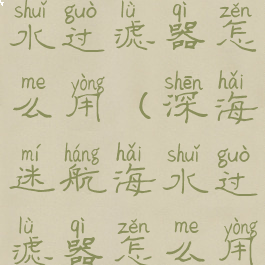 shuǐ guò lǜ qì zěn
水过滤器怎
me yòng shēn hǎi
么用(深海
mí háng hǎi shuǐ guò
迷航海水过
lǜ qì zěn me yòng
滤器怎么用